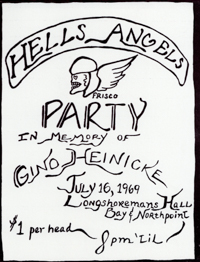 HELLS ANGELS
FRISCO
PARTY
IN MEMORY OF
GINO HEINICKE
JULY 16, 1969
Longshoremans Hall
Bay & Northpoint
$1 per head
8pm 'til